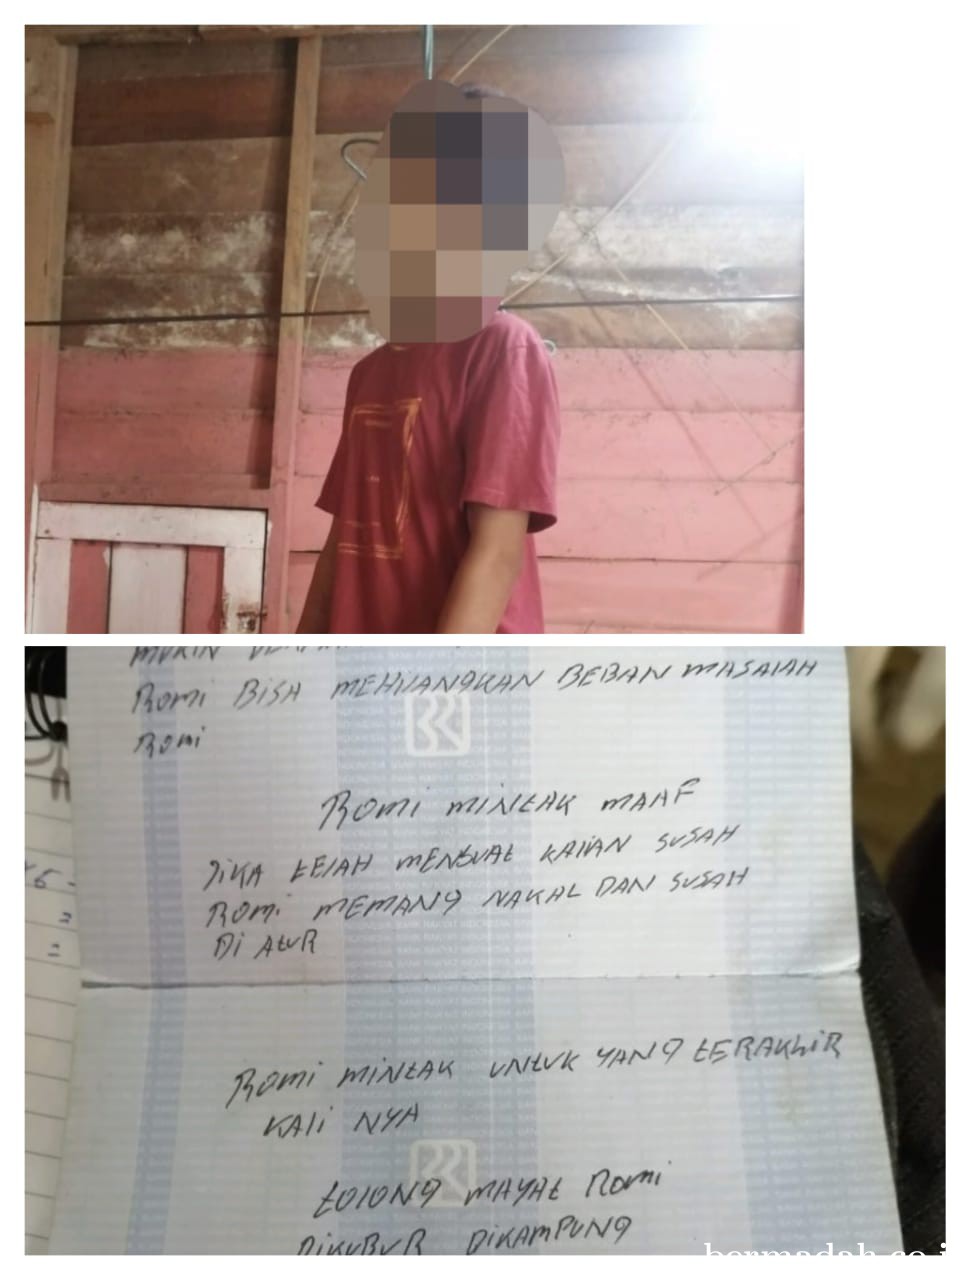 Romi BISA MEHILANGKAN BEBAN MASALAH
Romi
Romi MINTAK MAAF
JIKA TELAH MENBUAT KALIAN SUSAH
Romi MEMANG NAKAL DAN SUSAH
Di AtuR
Romi MINTAK UNTUK YANG TERAKHIR
KALi NYA
TOLONG MAYAT Romi
DIKUBUR DIKAMPUNG
bermadah.co.i